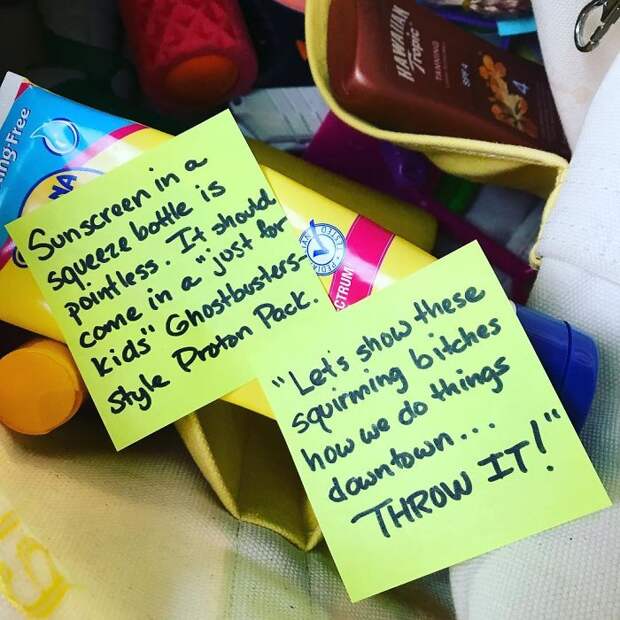 Sunscreen in a
squeeze bottle is
pointless. It should
come in a "just for
kids" Ghostbusters
style Proton Pack.
"Let's show these
squirming bitches
how we do things
downtown...
THROW IT!"
HAWAIIAN
Tropic
TANNING
SPF 4
4
ing-Free
NA
CTRUM
TESTED